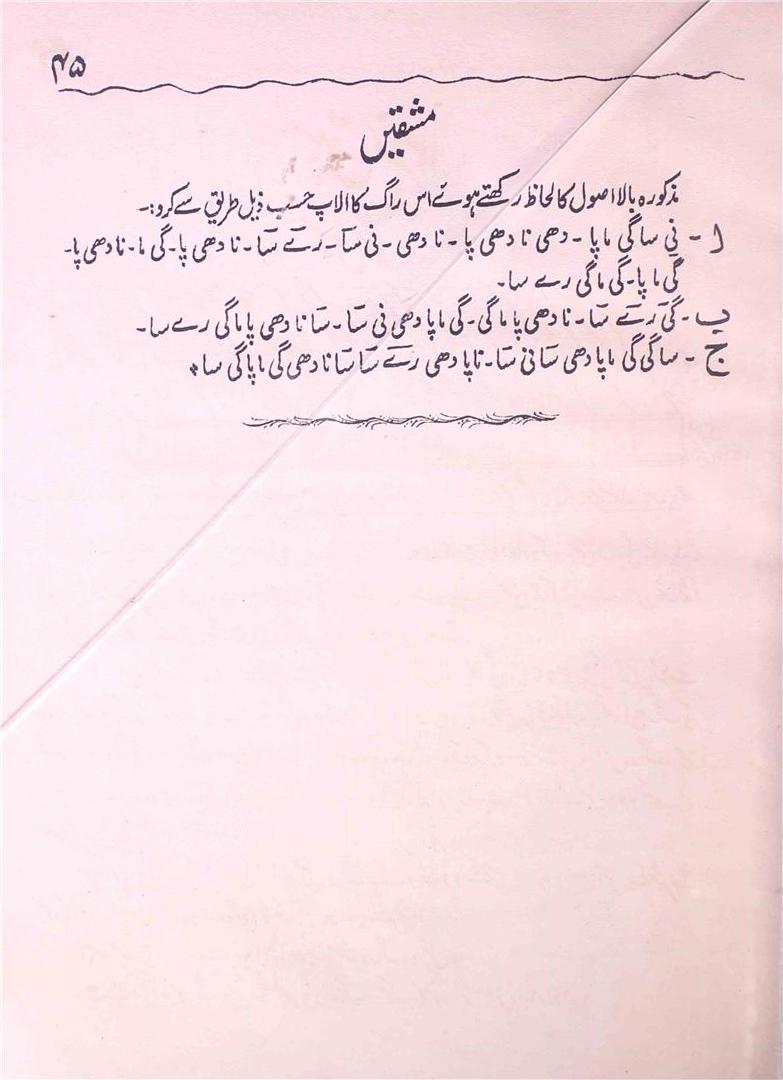 ۴۵
مشقیں
مذکورہ بالا اصول کا لحاظ رکھتے ہوئے اس راگ کا الاپ حسب ذیل طریق سے کرو:۔
ا - نی سا گی ما پا - دھی نا دھی پا - نا دھی - نی سَا - رےَ سَا - نا دھی پا - گی ما - نا دھی پا -
گی ما پا - گی ما گی رے سا -
ب - گیَ رےَ سَا - نا دھی پا ما گی - گی ما پا دھی نی سَا - سَا نا دھی پا ما گی رے سا -
ج - سا گی گی ما پا دھی سَا نی سَا - نا پا دھی رےَ سَا سَا نا دھی گی ما پا گی سا *